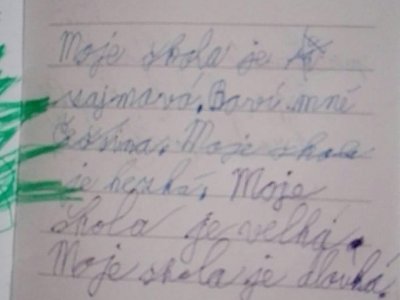 Moje skola je
zajmavá. Baví mně
čeština. Moje skola
je hezká. Moje
skola je velká.
Moje skola je dlouhá.